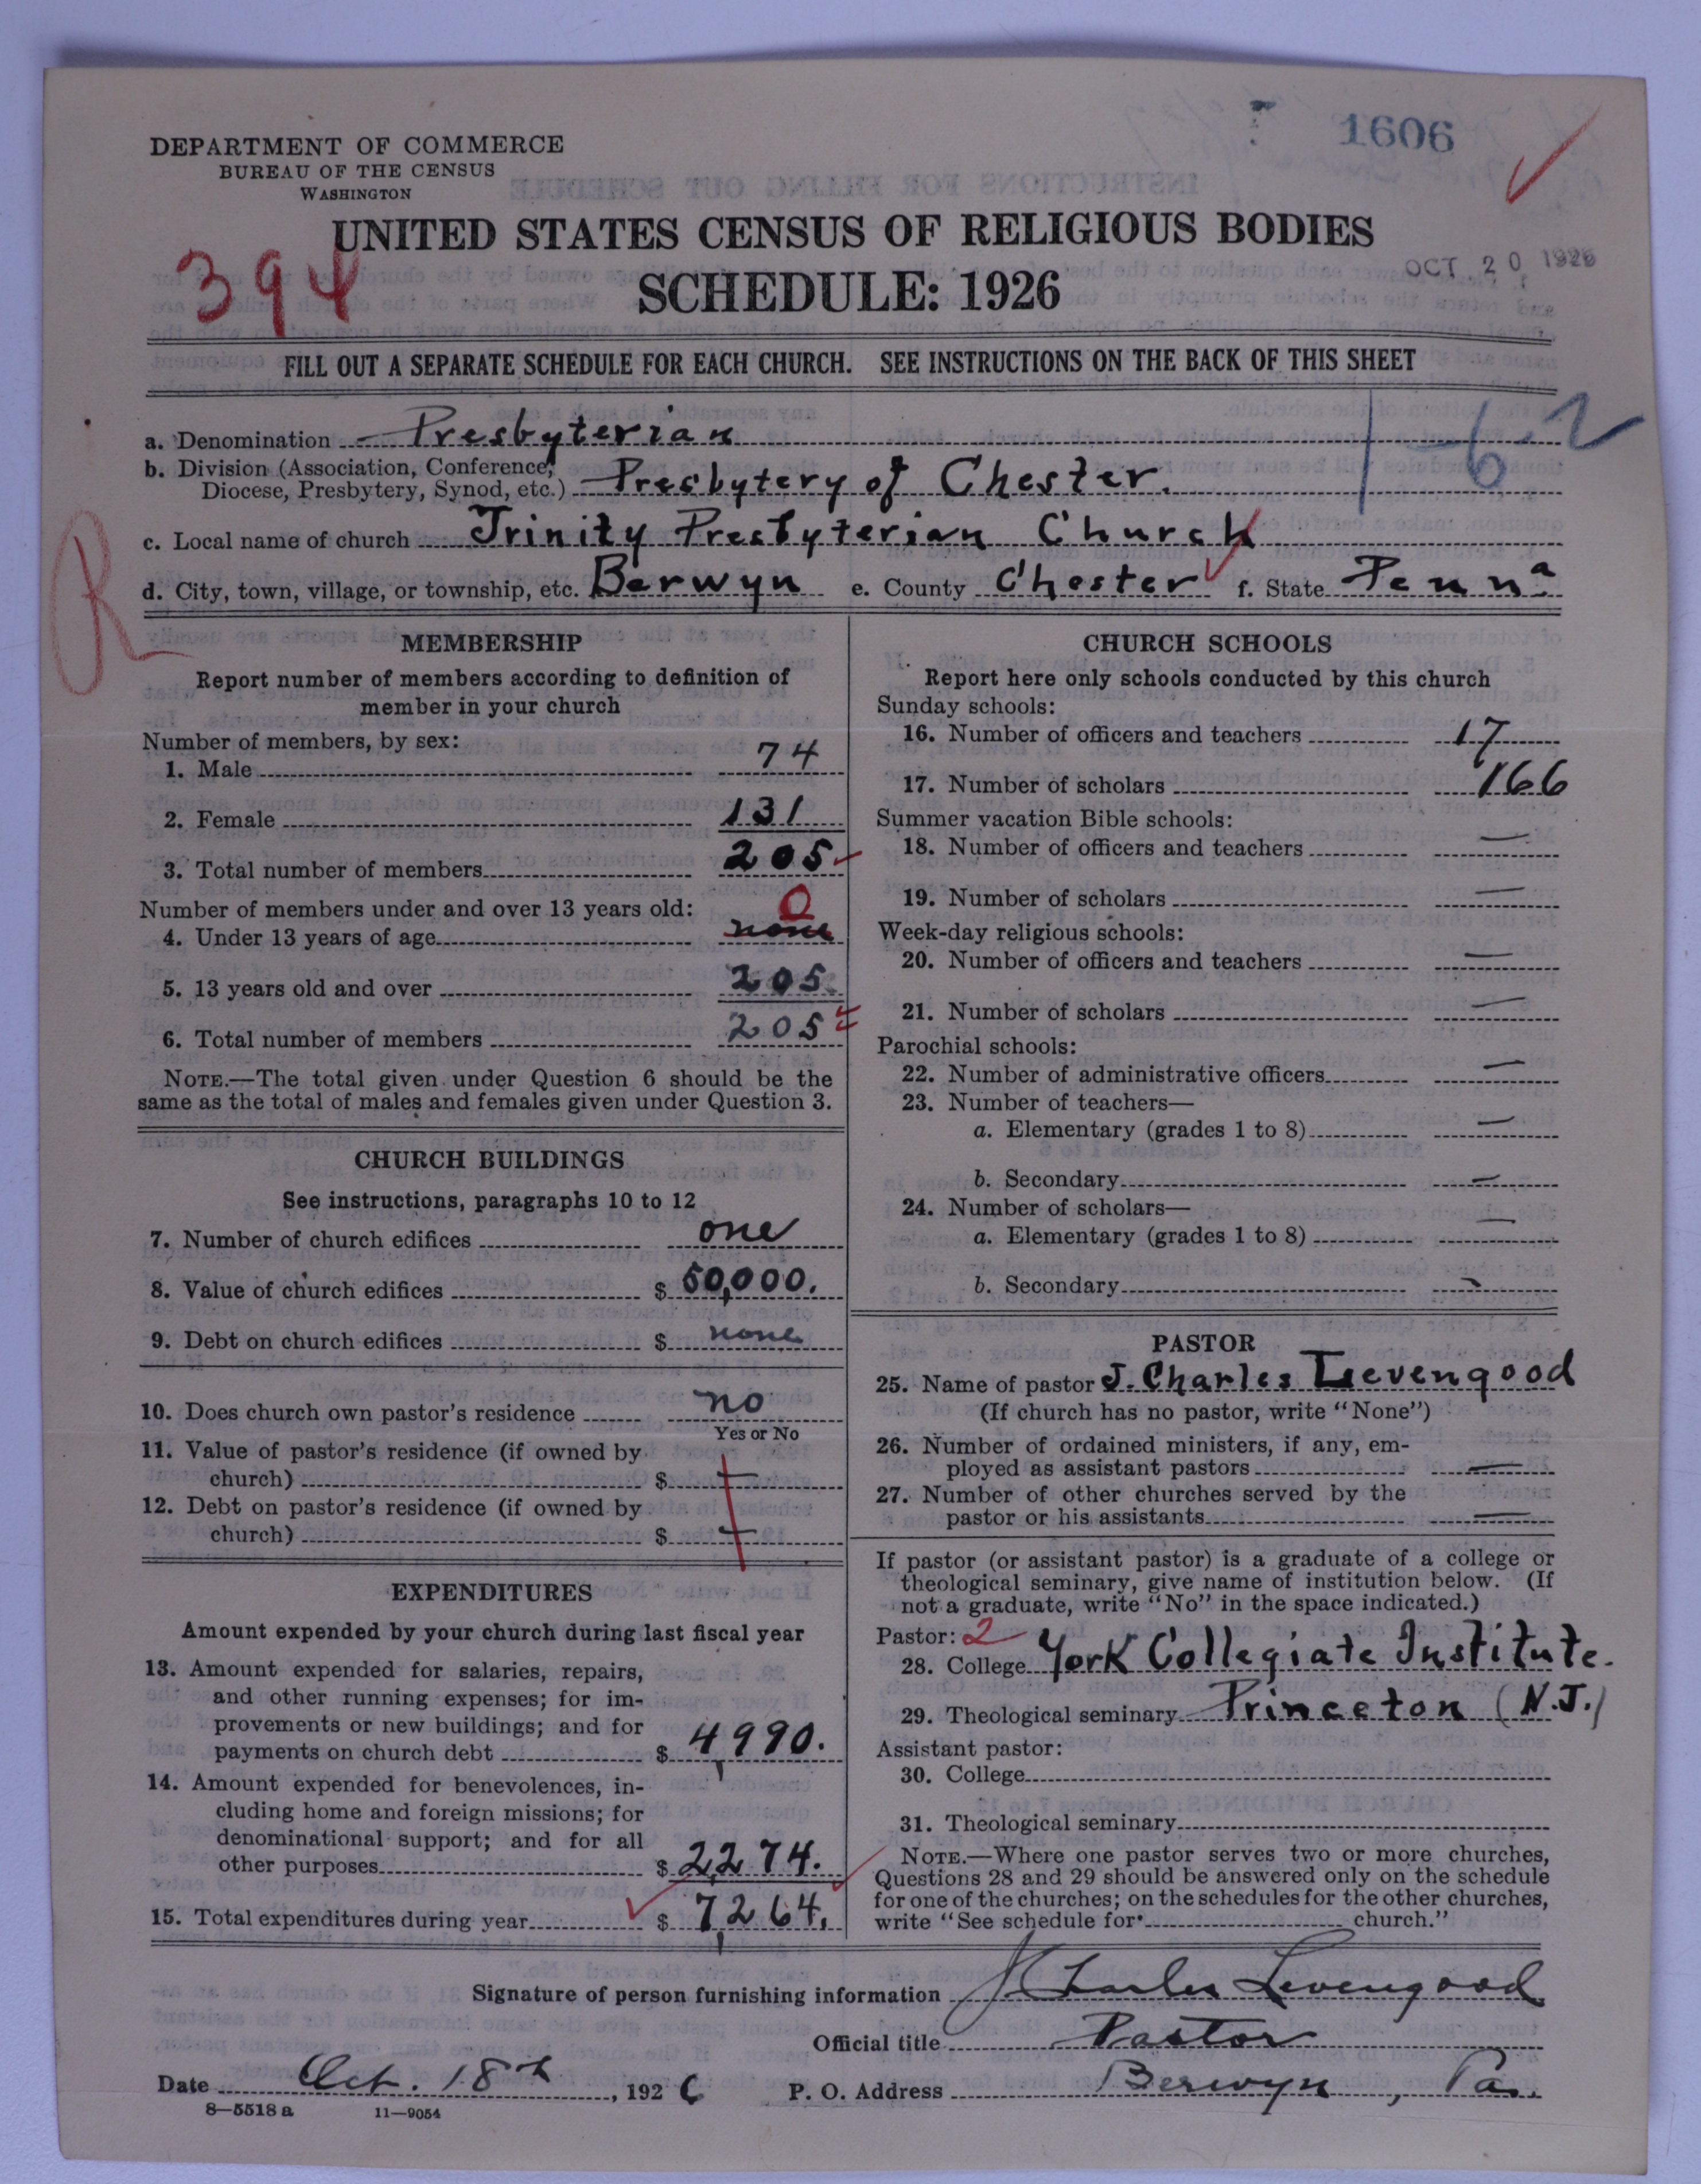 1606
DEPARTMENT OF COMMERCE
BUREAU OF THE CENSUS
WASHINGTON
UNITED STATES CENSUS OF RELIGIOUS BODIES
394
SCHEDULE: 1926
OCT 20 1926
FILL OUT A SEPARATE SCHEDULE FOR EACH CHURCH. SEE INSTRUCTIONS ON THE BACK OF THIS SHEET
a. Denomination Presbyterian
1-6-2
b. Division (Association, Conference,
Diocese, Presbytery, Synod, etc.) Presbytery of Chester.
c. Local name of church Trinity Presbyterian Church
d. City, town, village, or township, etc. Berwyn e. County Chester f. State Penna
R
MEMBERSHIP
Report number of members according to definition of
member in your church
Number of members, by sex:
1. Male 74
2. Female 131
3. Total number of members 205
Number of members under and over 13 years old:
0
4. Under 13 years of age none
5. 13 years old and over 205
6. Total number of members 205
NOTE.—The total given under Question 6 should be the
same as the total of males and females given under Question 3.
CHURCH BUILDINGS
See instructions, paragraphs 10 to 12
7. Number of church edifices one
8. Value of church edifices $ 50,000.
9. Debt on church edifices $ none
10. Does church own pastor's residence no
Yes or No
11. Value of pastor's residence (if owned by
church) $ —
12. Debt on pastor's residence (if owned by
church) $ —
EXPENDITURES
Amount expended by your church during last fiscal year
13. Amount expended for salaries, repairs,
and other running expenses; for im-
provements or new buildings; and for
payments on church debt $ 4,990.
14. Amount expended for benevolences, in-
cluding home and foreign missions; for
denominational support; and for all
other purposes $ 2,274.
15. Total expenditures during year $ 7,264.
CHURCH SCHOOLS
Report here only schools conducted by this church
Sunday schools:
16. Number of officers and teachers 17
17. Number of scholars 166
Summer vacation Bible schools:
18. Number of officers and teachers —
19. Number of scholars —
Week-day religious schools:
20. Number of officers and teachers —
21. Number of scholars —
Parochial schools:
22. Number of administrative officers —
23. Number of teachers—
a. Elementary (grades 1 to 8) —
b. Secondary —
24. Number of scholars—
a. Elementary (grades 1 to 8) —
b. Secondary —
PASTOR
25. Name of pastor J. Charles Levengood
(If church has no pastor, write "None")
26. Number of ordained ministers, if any, em-
ployed as assistant pastors —
27. Number of other churches served by the
pastor or his assistants —
If pastor (or assistant pastor) is a graduate of a college or
theological seminary, give name of institution below. (If
not a graduate, write "No" in the space indicated.)
Pastor: 2
28. College York Collegiate Institute.
29. Theological seminary Princeton (N.J.)
Assistant pastor:
30. College
31. Theological seminary
NOTE.—Where one pastor serves two or more churches,
Questions 28 and 29 should be answered only on the schedule
for one of the churches; on the schedules for the other churches,
write "See schedule for church."
Signature of person furnishing information J Charles Levengood
Official title Pastor
Date Oct. 18th, 1926 P. O. Address Berwyn, Pa.
8—5518 a 11—9054